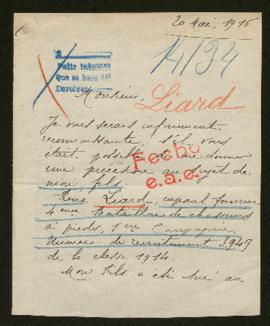 20 Mai, 1916
2
Pedir informes
Que se haga así
Devolver
14/94
Monsieur
Liard
Je vous serais infiniment
reconnaissante s'il vous
était possible de me donner
une précision au sujet de
mon fils
Fecho
e.a.e.
René Liard, caporal fourrier
4ème Bataillon de chasseurs
à pieds, 1ère Compagnie
Numéro de recrutement 3949
de la classe 1914.
Mon Fils a été tué au